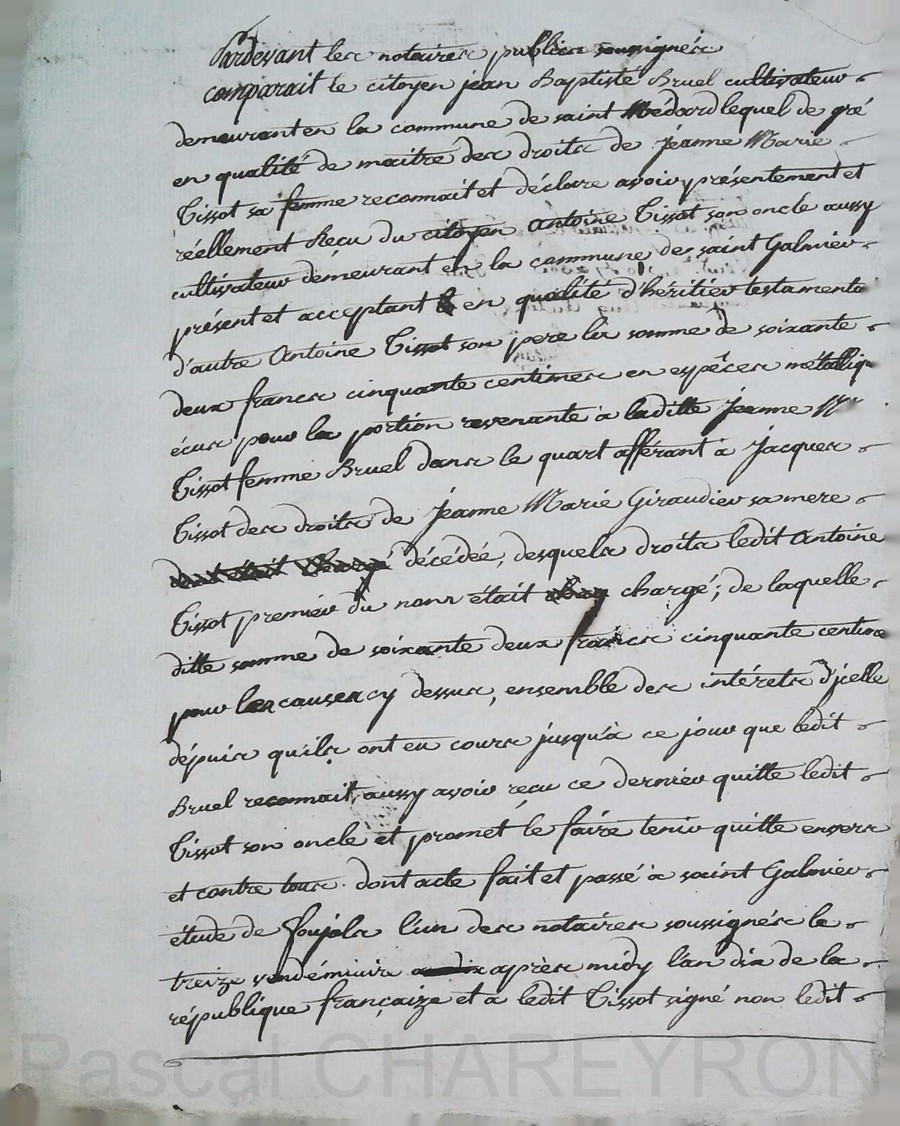 Pardevant les notaires publics soussignés
comparait le citoyen jean Baptiste Bruel cultivateur
demeurant en la commune de saint Médard lequel de gré
en qualité de maitre des droits de jeanne Marie
Tissot sa femme reconnait et déclare avoir présentement et
réellement Reçu du citoyen Antoine Tissot son oncle aussy
cultivateur demeurant en la commune de saint Galmier
présent et acceptant & en qualité d'héritier testamento
d'autre Antoine Tissot son pere la somme de soixante
deux francs cinquante centimes en espêces métalliq
écus pour la portion revenante à laditte Jeanne M
Tissot femme Bruel dans le quart afférant à Jacques
Tissot des droits de Jeanne Marie Giraudier sa mere
dont était chargé décédée, desquels droits ledit Antoine
Tissot premier du nom était chargé; de laquelle
ditte somme de soixante deux francs cinquante centime
pour les causes cy dessus, ensemble des intérets d'jcelle
dépuis qu'ils ont eu cours jusqu'à ce jour que ledit
Bruel reconnait aussy avoir reçu ce dernier quitte ledit
Tissot son oncle et promét le faire tenir quitte envers
et contre tous. dont acte fait et passé à saint Galmier
étude de Foujols l'un des notaires soussignés le
treize vendémiaire après midy l'an dix de la
république françaize et a ledit Tissot signé non ledit
Pascal CHAREYRON